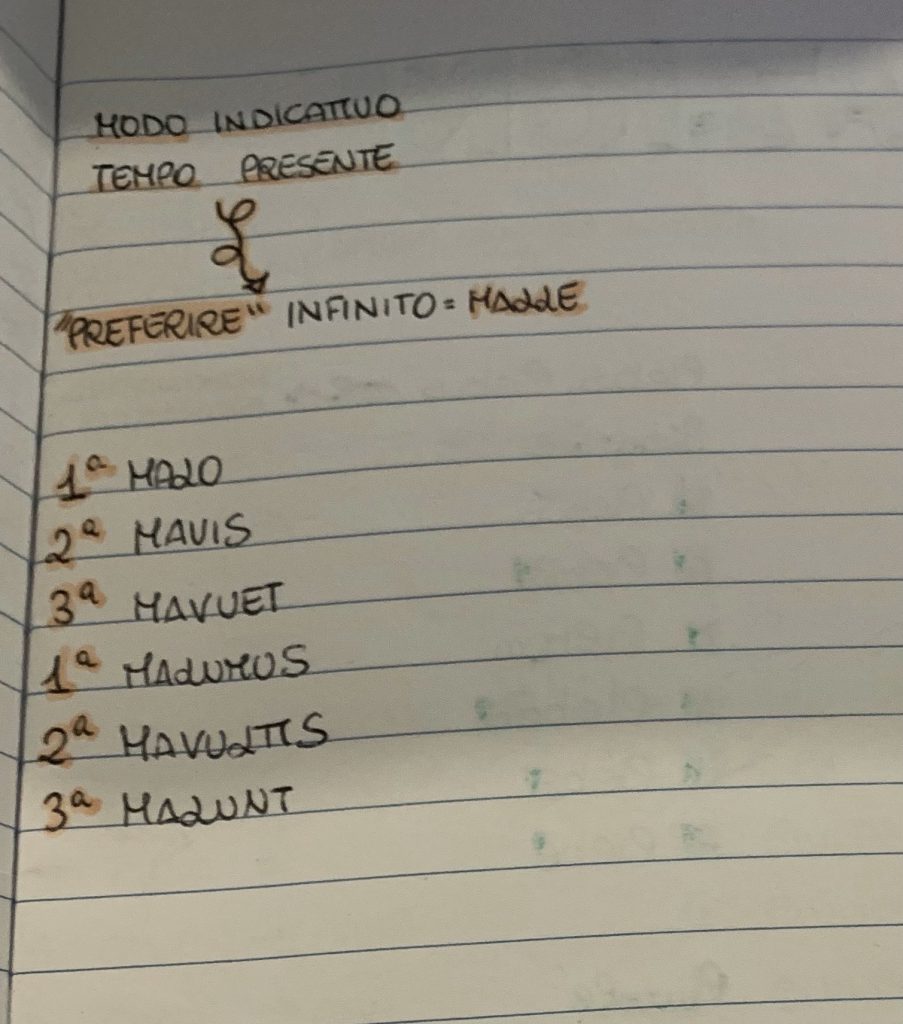 MODO INDICATIVO
TEMPO PRESENTE
"PREFERIRE" INFINITO = MALLE
1ª MALO
2ª MAVIS
3ª MAVUET
1ª MALUMUS
2ª MAVULTIS
3ª MALUNT